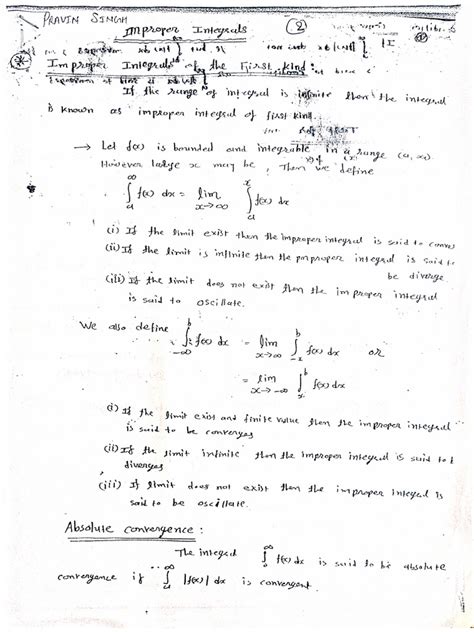 PRAVIN SINGH
Improper Integrals
2
Improper Integrals of the First kind:
If the range of integral is infinite then the integral
is known as improper integral of first kind.
→ Let f(x) is bounded and integrable in a range (a, x)
However large x may be, Then we define
∫_a^∞ f(x) dx = lim_{x→∞} ∫_a^x f(x) dx
(i) If the limit exist then the improper integral is said to conver
(ii) If the limit is infinite then the improper integral is said to
be diverge
(iii) If the limit does not exist then the improper integral
is said to oscillate.
We also define ∫_{-∞}^b f(x) dx = lim_{x→∞} ∫_{-x}^b f(x) dx or
= lim_{x→-∞} ∫_x^b f(x) dx
(i) If the limit exist and finite value then the improper integral
is said to be converges
(ii) If the limit infinite then the improper integral is said to
diverges
(iii) If limit does not exist then the improper integral is
said to be oscillate.
Absolute convergence:
The integral ∫^∞ f(x) dx is said to be absolute
convergence if ∫_a^∞ |f(x)| dx is convergent.